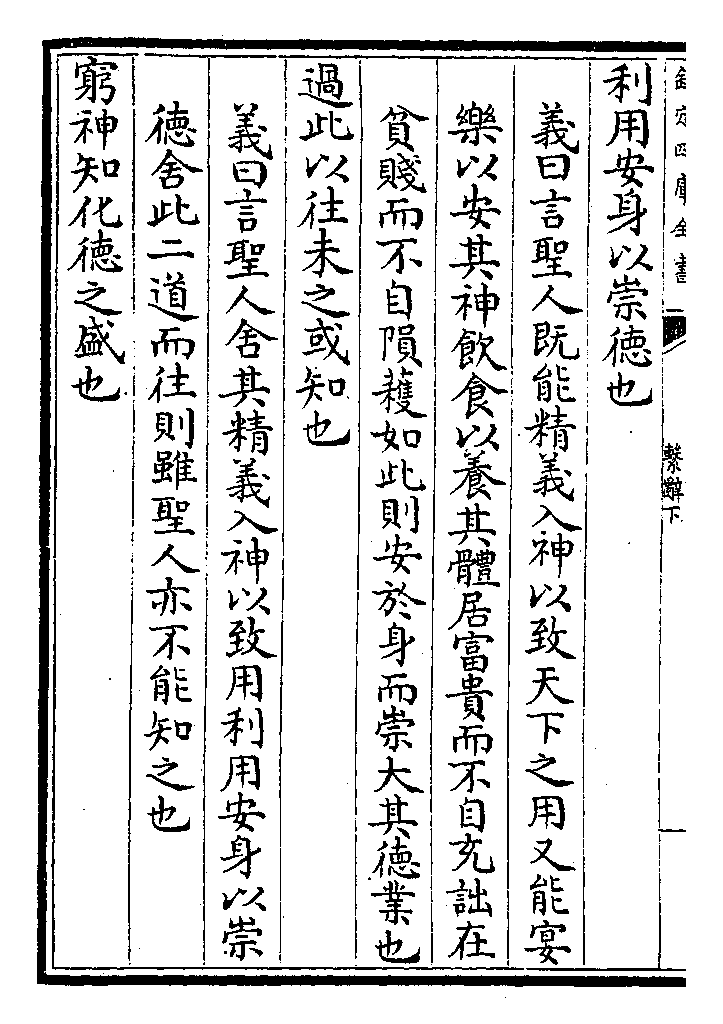 欽定四庫全書
繫辭下
利用安身以崇徳也
義曰言聖人既能精義入神以致天下之用又能宴
樂以安其神飲食以養其體居富貴而不自充詘在
貧賤而不自隕蒦如此則安於身而崇大其徳業也
過此以往未之或知也
義曰言聖人舍其精義入神以致用利用安身以崇
徳舍此二道而往則雖聖人亦不能知之也
窮神知化徳之盛也